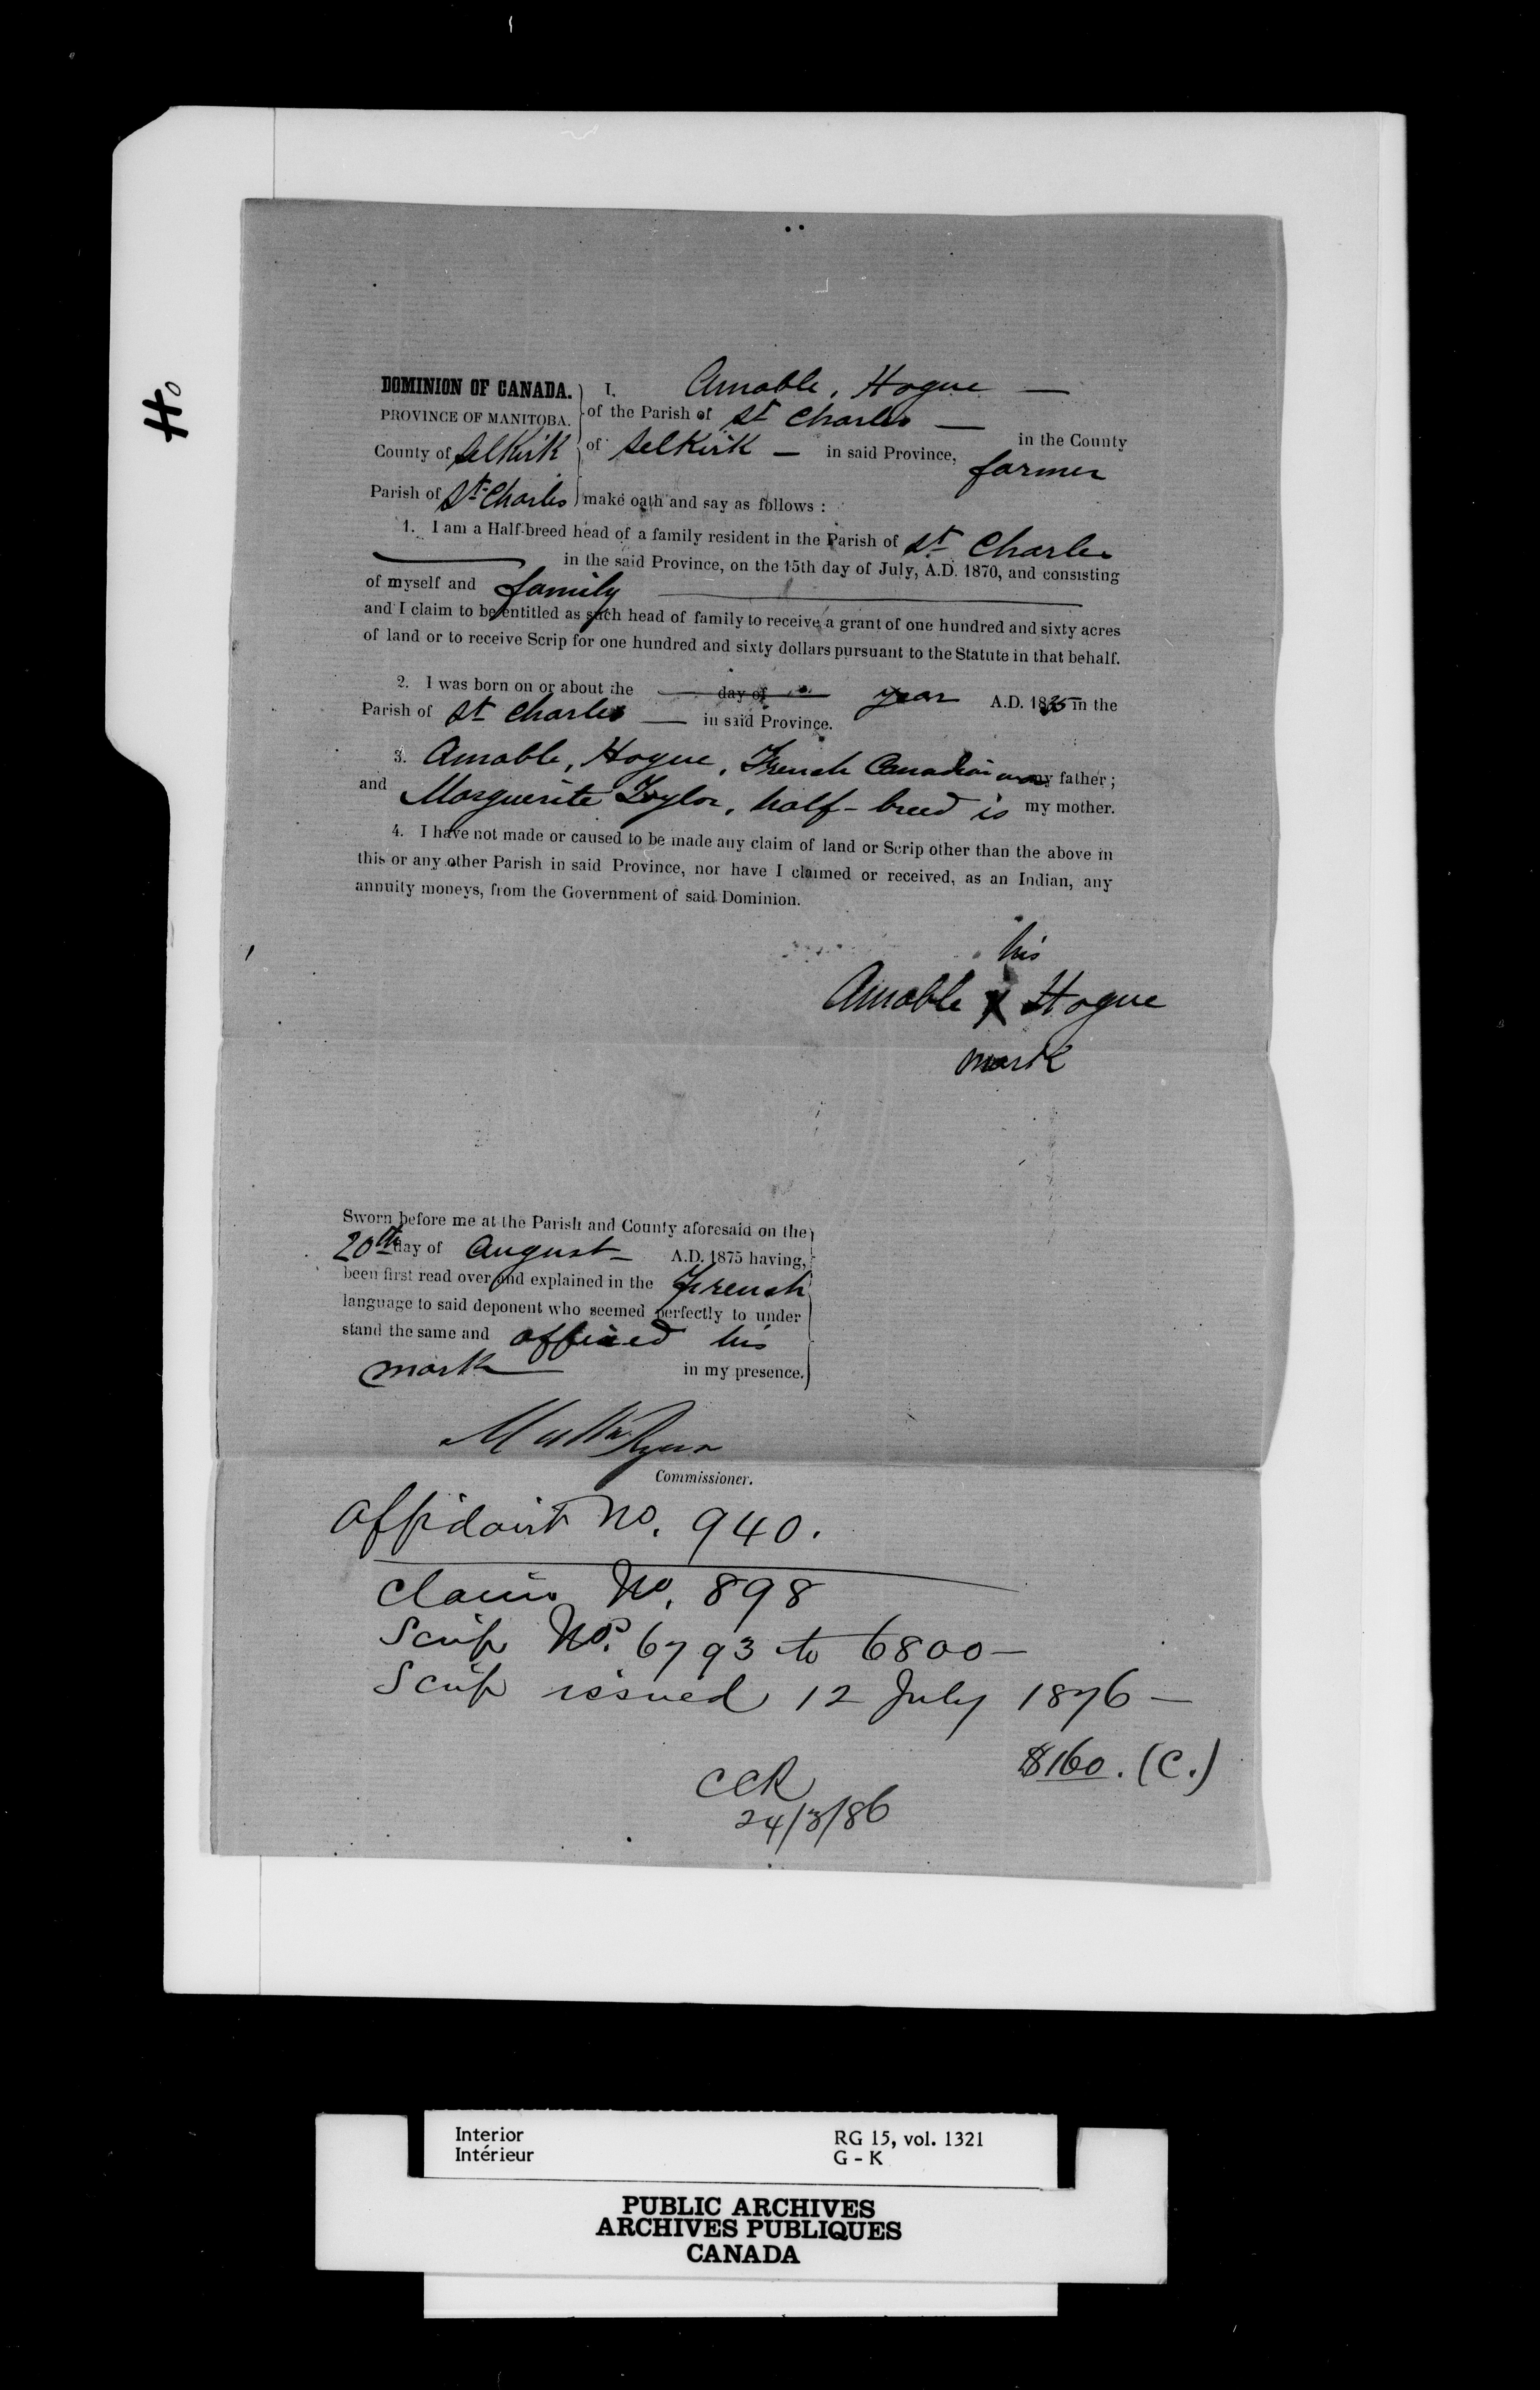 Ho
DOMINION OF CANADA.
PROVINCE OF MANITOBA.
County of Selkirk
Parish of St. Charles
I, Amable, Hogue —
of the Parish of St Charles — in the County
of Selkirk — in said Province, farmer
make oath and say as follows :
1. I am a Half-breed head of a family resident in the Parish of St Charles
in the said Province, on the 15th day of July, A.D. 1870, and consisting
of myself and family
and I claim to be entitled as such head of family to receive a grant of one hundred and sixty acres
of land or to receive Scrip for one hundred and sixty dollars pursuant to the Statute in that behalf.
2. I was born on or about the day of year A.D. 1835 in the
Parish of St Charles — in said Province.
3. Amable, Hogue, French Canadian was my father ;
and Marguerite Taylor, half-breed is my mother.
4. I have not made or caused to be made any claim of land or Scrip other than the above in
this or any other Parish in said Province, nor have I claimed or received, as an Indian, any
annuity moneys, from the Government of said Dominion.
his
Amable X Hogue
mark
Sworn before me at the Parish and County aforesaid on the
20th day of August — A.D. 1875 having,
been first read over and explained in the French
language to said deponent who seemed perfectly to under
stand the same and affixed his
mark in my presence.
Matt Ryan
Commissioner.
Affidavit No. 940.
Claim No. 898
Scrip Nos. 6793 to 6800 —
Scrip issued 12 July 1876 —
$160. (C.)
CCR
24/3/86
Interior
Intérieur
RG 15, vol. 1321
G - K
PUBLIC ARCHIVES
ARCHIVES PUBLIQUES
CANADA